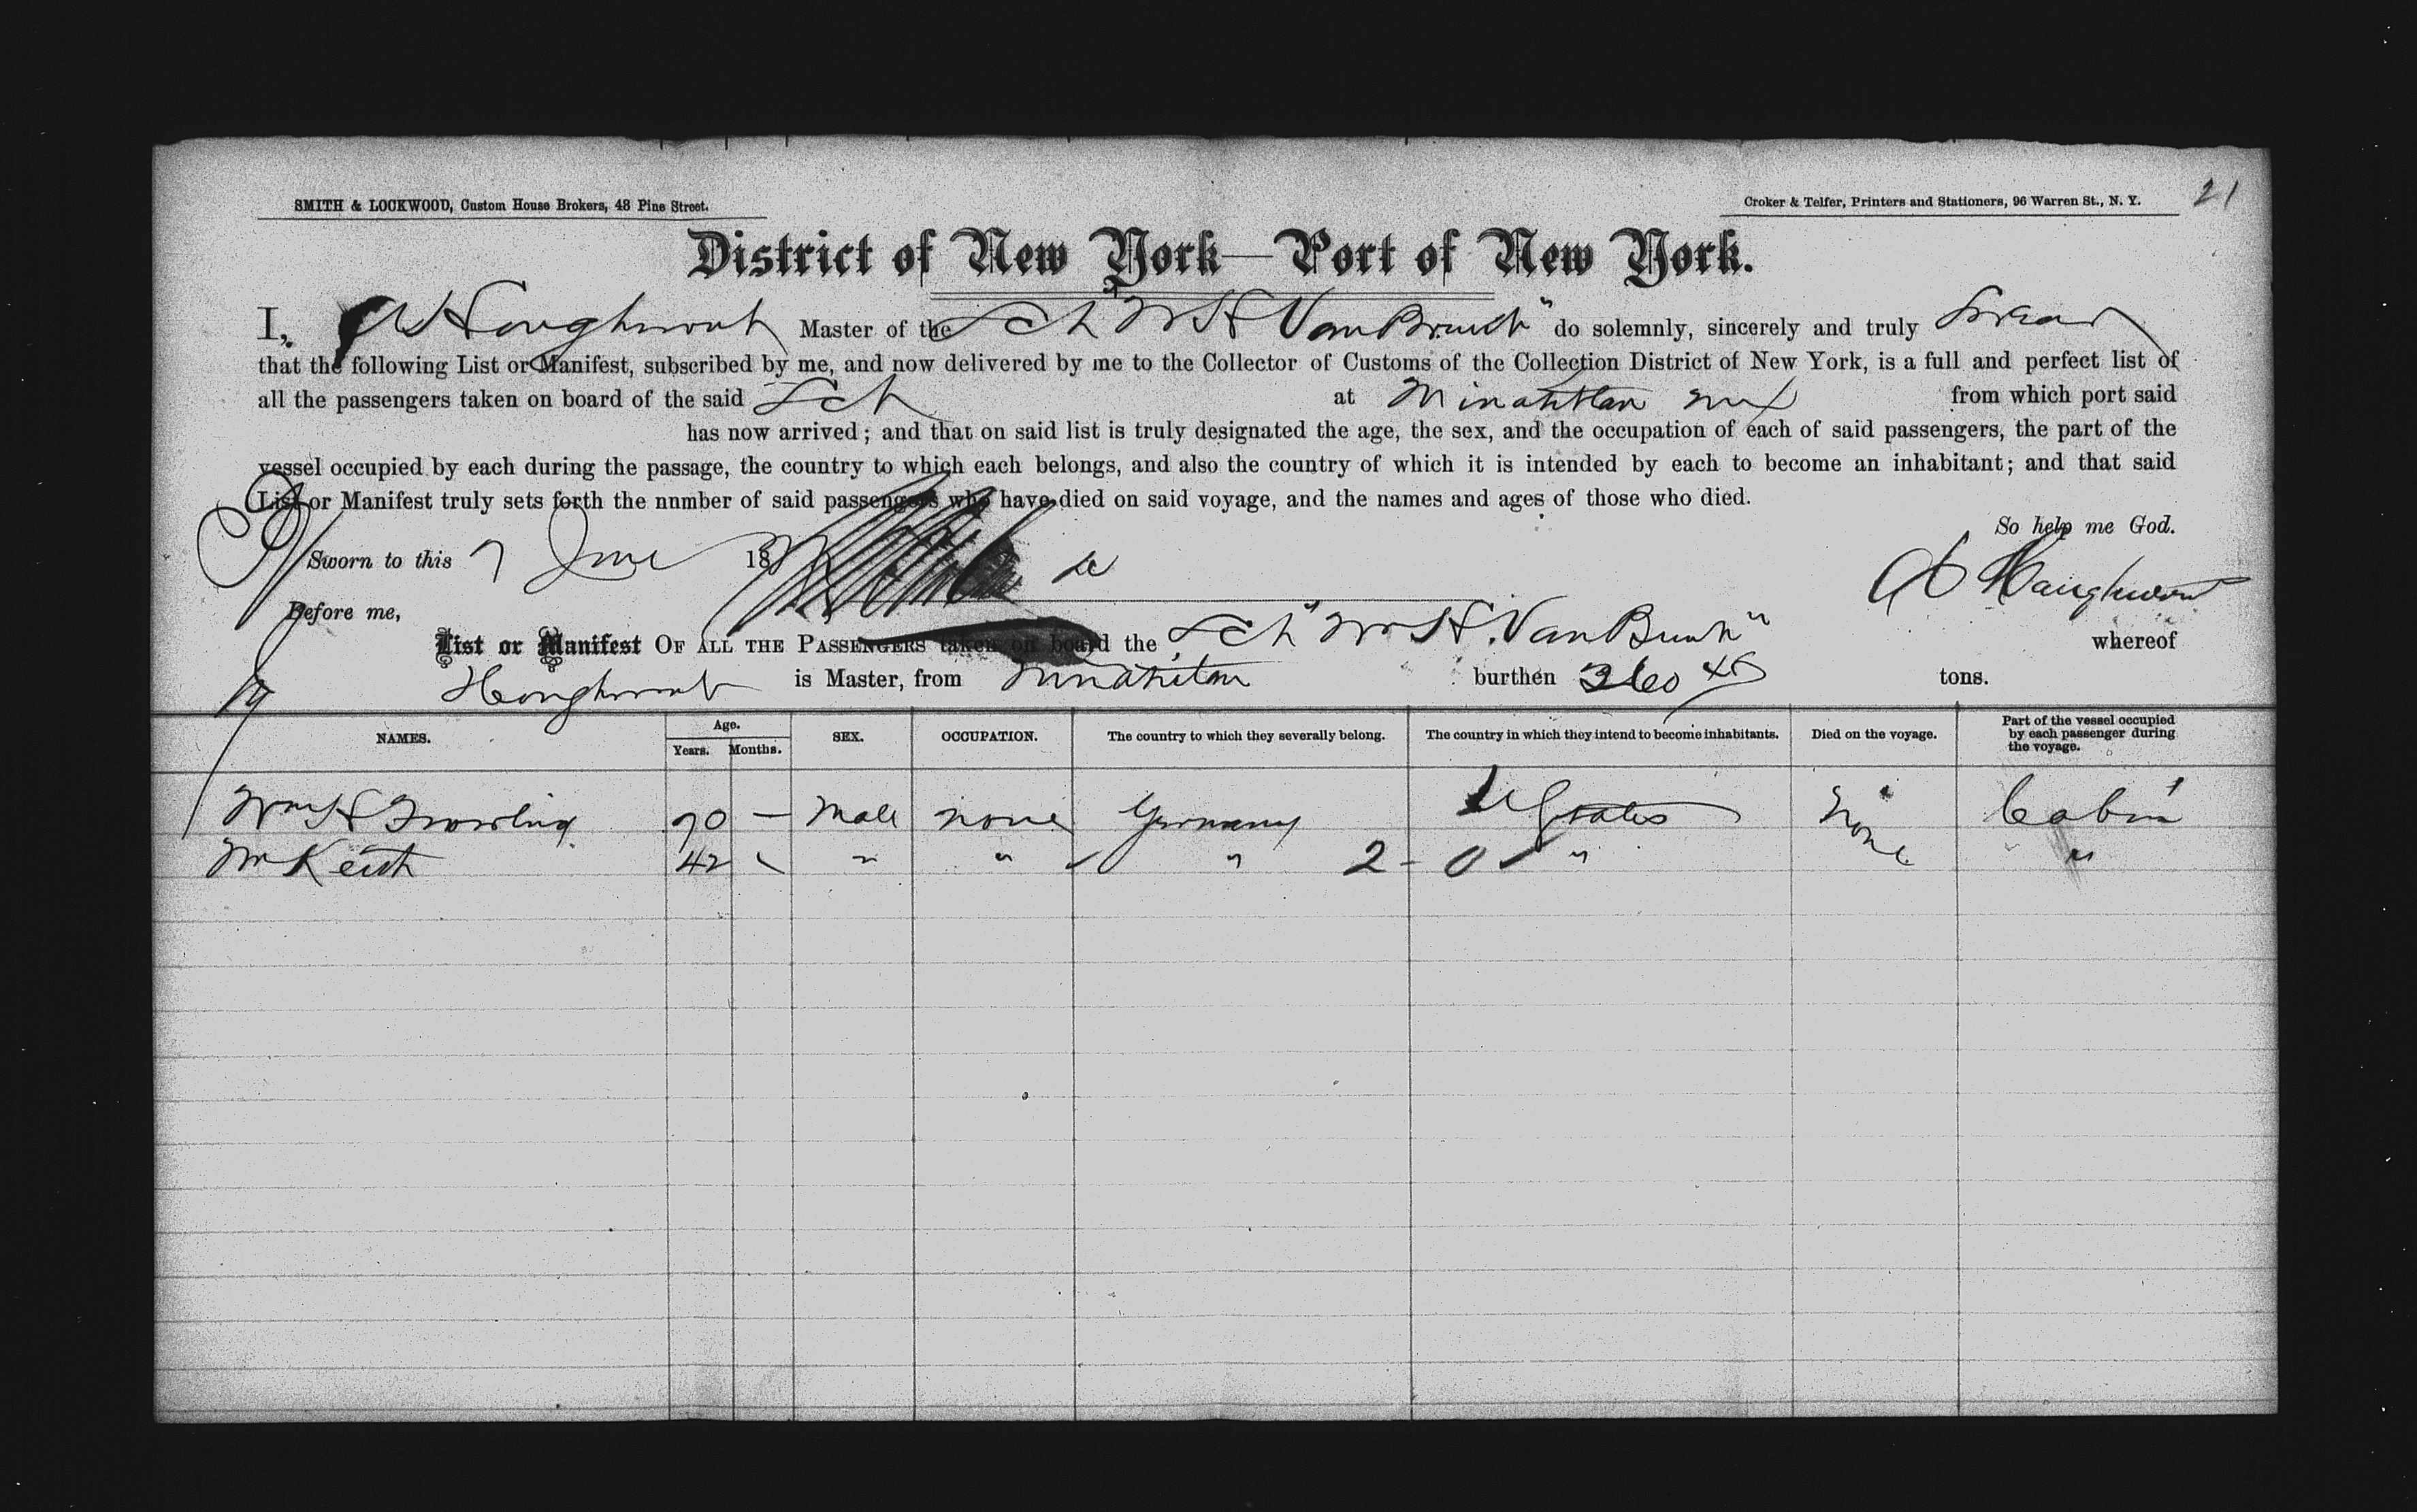 SMITH & LOCKWOOD, Custom House Brokers, 48 Pine Street.
Croker & Telfer, Printers and Stationers, 96 Warren St., N. Y. 21
District of New York—Port of New York.
I, A Houghwout Master of the Sch "Wm H Van Brunt" do solemnly, sincerely and truly Swear
that the following List or Manifest, subscribed by me, and now delivered by me to the Collector of Customs of the Collection District of New York, is a full and perfect list of
all the passengers taken on board of the said Sch at Minatitlan Mex from which port said
has now arrived; and that on said list is truly designated the age, the sex, and the occupation of each of said passengers, the part of the
vessel occupied by each during the passage, the country to which each belongs, and also the country of which it is intended by each to become an inhabitant; and that said
List or Manifest truly sets forth the nnmber of said passengers who have died on said voyage, and the names and ages of those who died.
So help me God.
Sworn to this 7 June 18
Before me,
List or Manifest OF ALL THE PASSENGERS taken on board the Sch "Wm H. Van Brunt" whereof
Houghwout is Master, from Minatitlan burthen 360 tons.
NAMES. Age. Years. Months. SEX. OCCUPATION. The country to which they severally belong. The country in which they intend to become inhabitants. Died on the voyage. Part of the vessel occupied by each passenger during the voyage.
Wm H 70 — Male none Germany U States None Cabin
Keith 42 " " " 2 - 0 " "